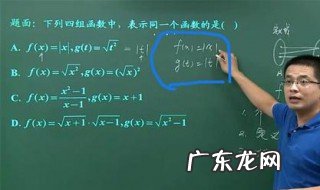 题面：下列四组函数中，表示同一个函数的是( )
A. f(x)=|x|,g(t)=√t² =|t|
f(x)=|x|
g(t)=|t
B. f(x)=√x²,g(x)=(√x)²
C. f(x)=x²-1/x-1,g(x)=x+1
D. f(x)=√x+1·√x-1,g(x)=√x²-1
广东龙网